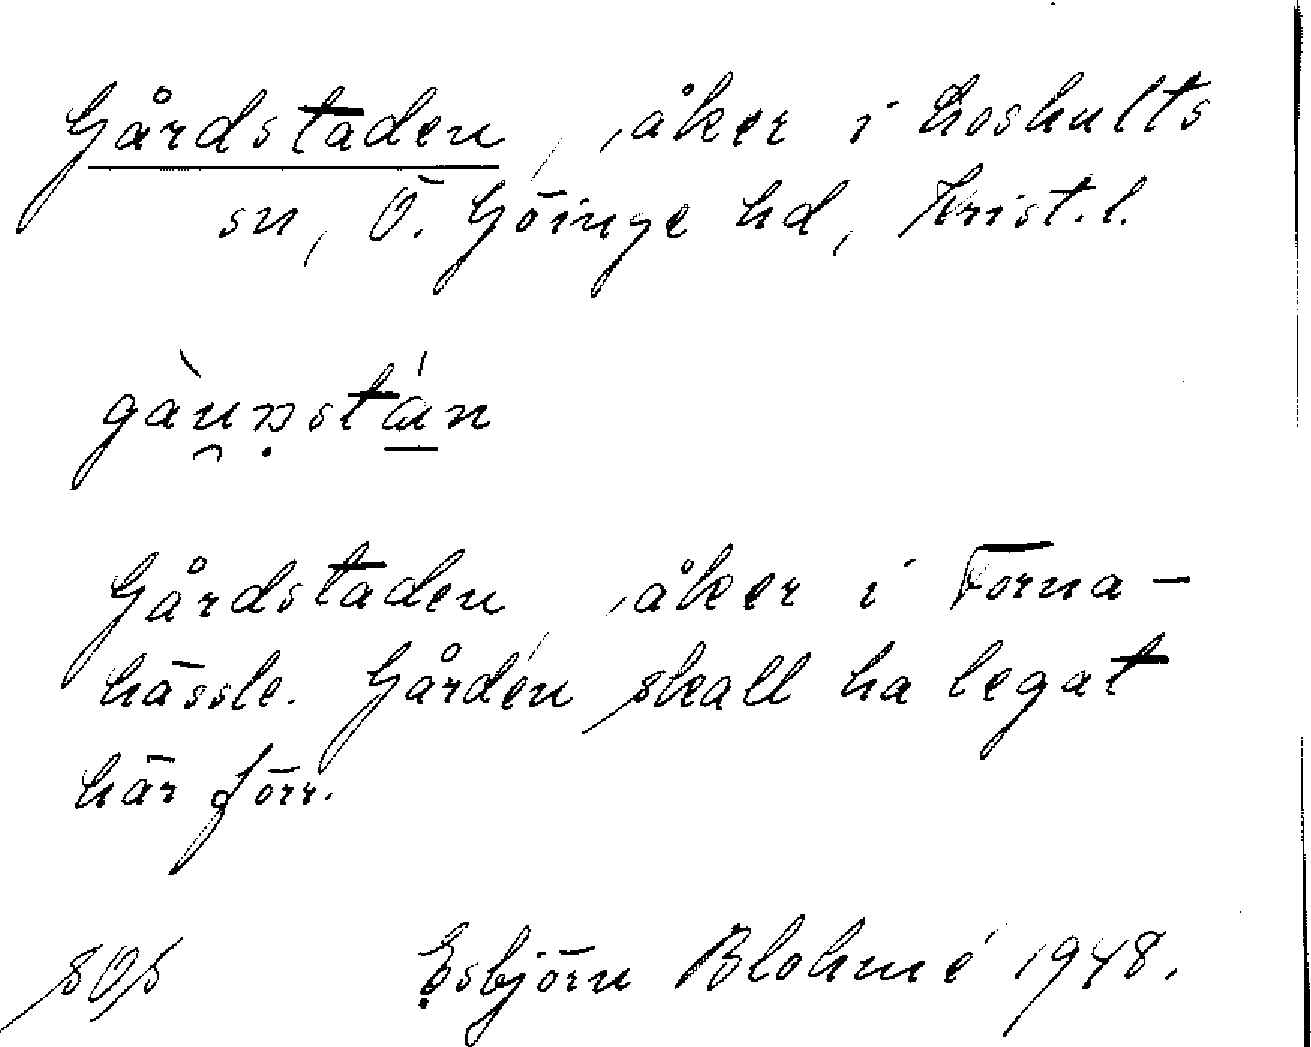 Gårdstaden, åker i Loshults
sn, Ö. Göinge hd, Krist. l.
Gårdstaden, åker i Torna-
hässle. Gården skall ha legat
här förr.
Esbjörn Blohmé 1948.